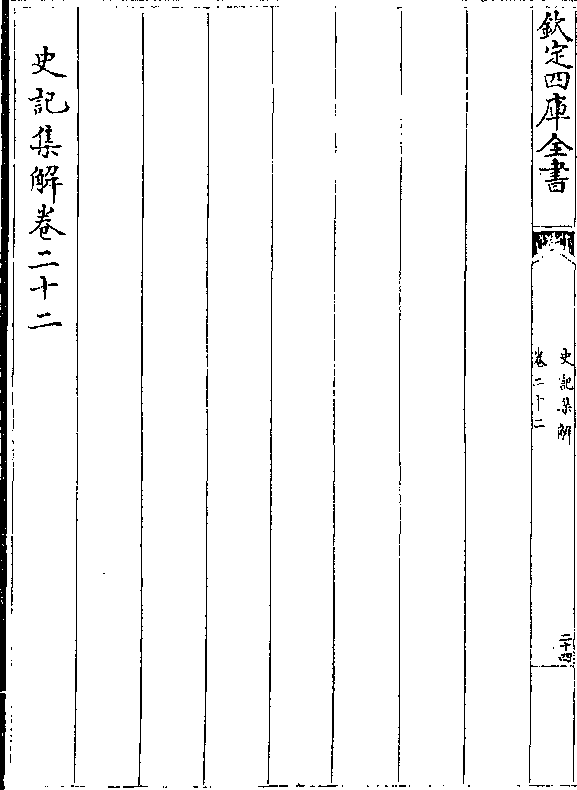 欽定四庫全書
史記集解
卷二十二
二十四
史記集解卷二十二